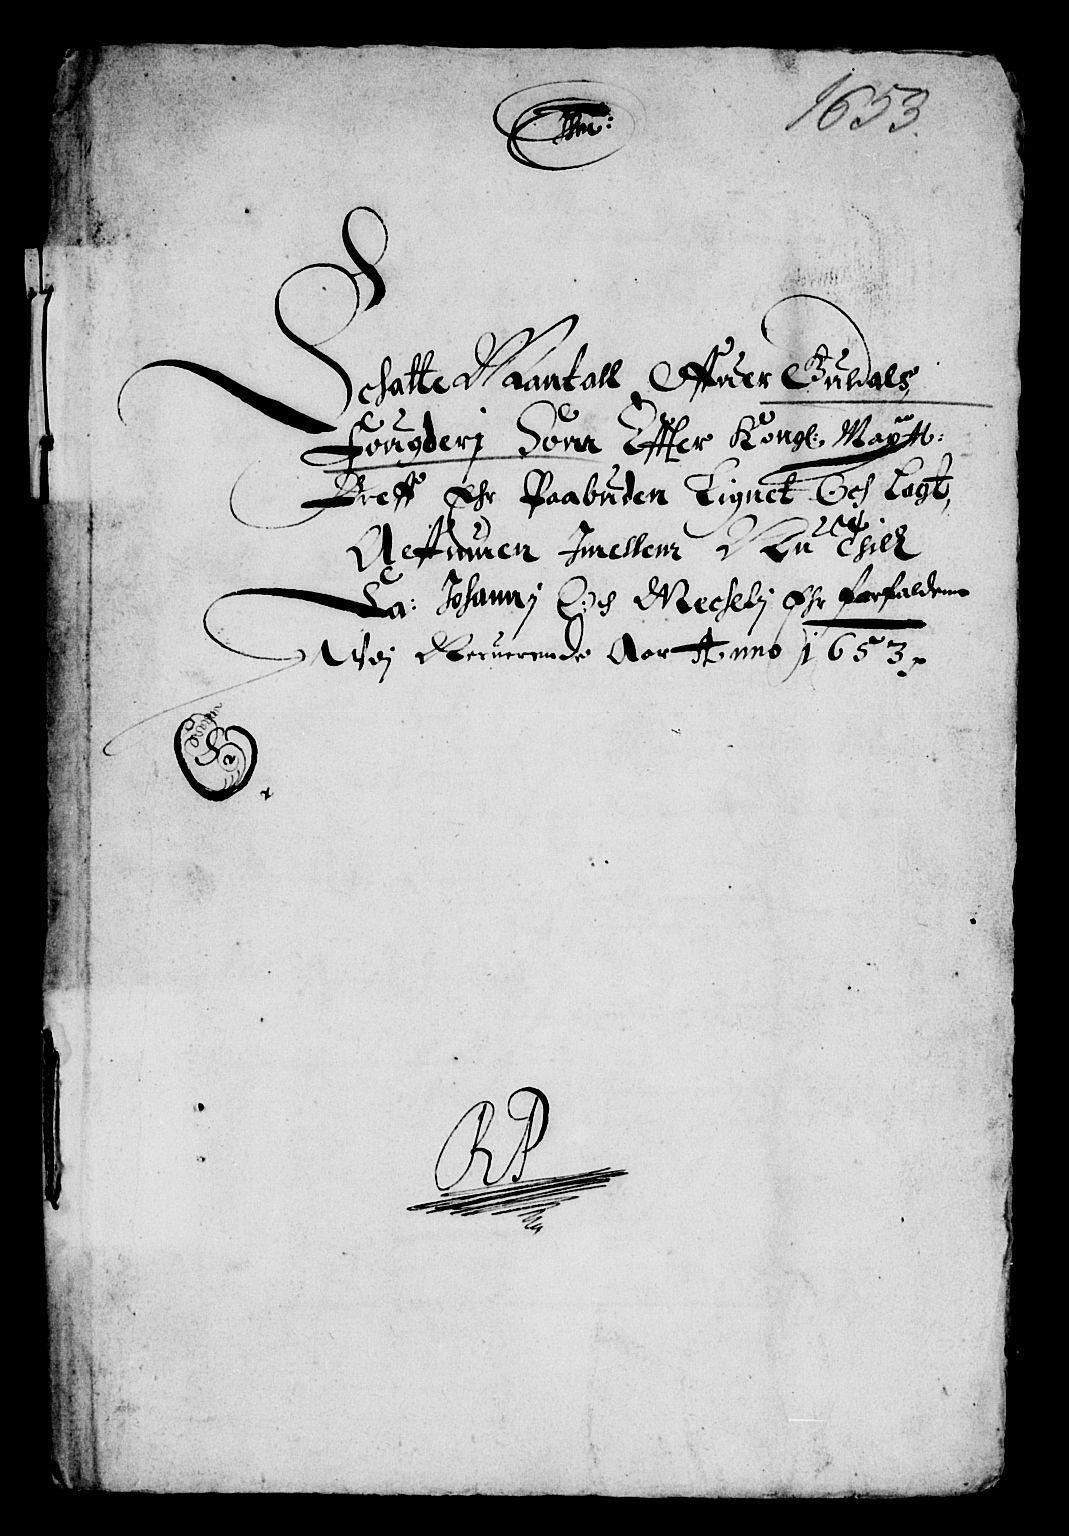 1653.
Schatte Mantall Offuer Guldals
Fougderj Som Effter Kongl: Maytt:
Breff Ehr Paabuden Lignet Och Lagt,
Aefftuuen Imellem Nu Thill
Sa: Johannj Och Mechelj Ehr forfalden
Wdj Neruerende Aar Anno 1653
RP